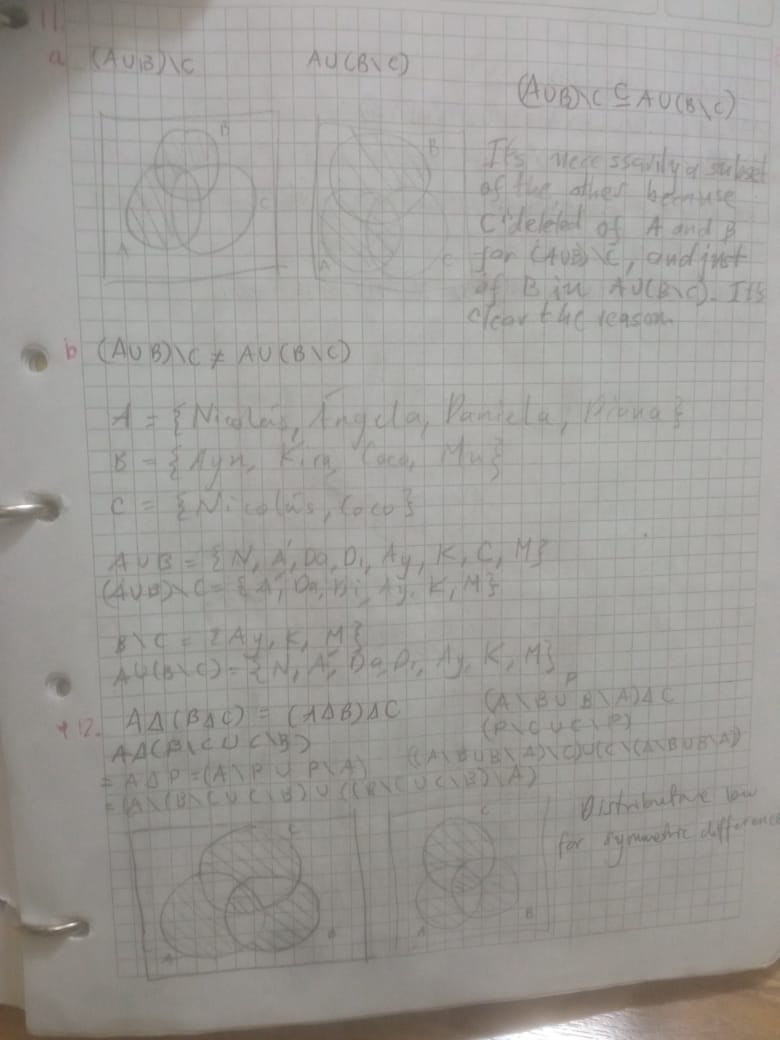 11.
a (A∪B)\C A∪(B\C)
(A∪B)\C ⊆ A∪(B\C)
B
C
A
B
C
A
It's necessarily a subset
of the other because
C deleted of A and B
for (A∪B)\C, and just
of B in A∪(B\C). It's
clear the reason.
b (A∪B)\C ≠ A∪(B\C)
A = {Nicolás, Ángela, Daniela, Diana}
B = {Ayn, Kira, Coco, Mu}
C = {Nicolás, Coco}
A∪B = {N, Á, Da, Di, Ay, K, C, M}
(A∪B)\C = {Á, Da, Di, Ay, K, M}
B\C = {Ay, K, M}
A∪(B\C) = {N, Á, Da, Di, Ay, K, M}
12. A∆(B∆C) = (A∆B)∆C
A∆(B\C∪C\B)
= A∆P = (A\P∪P\A)
= (A\(B\C∪C\B)∪((B\C∪C\B)\A)
P
(A\B∪B\A)∆C
(P\C∪C\P)
((A\B∪B\A)\C)∪(C\(A\B∪B\A))
C
A
B
C
A
B
Distributive law
for symmetric difference